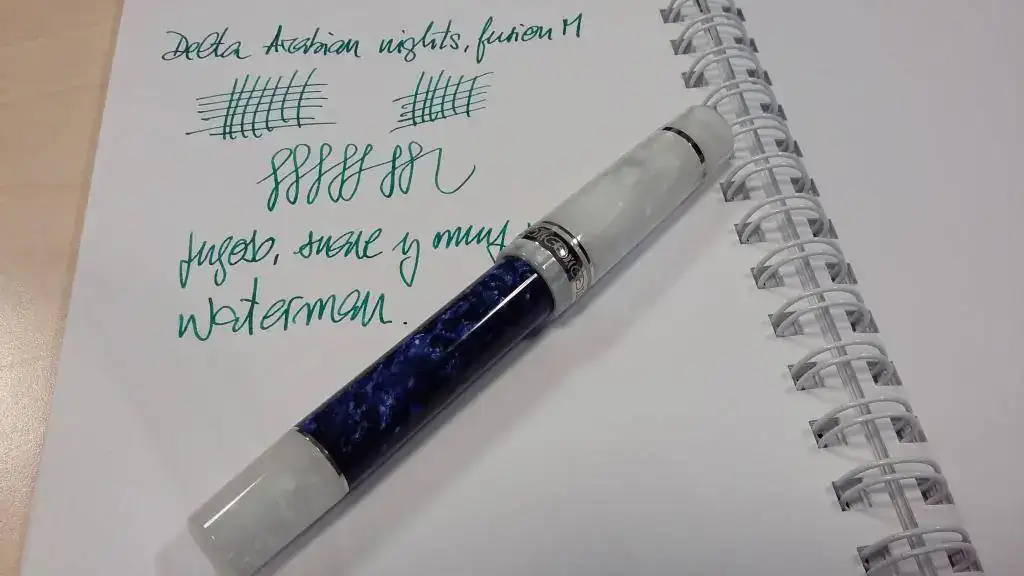 Delta Arabian nights, fusion M
Jugoso, suave y muy
Waterman.